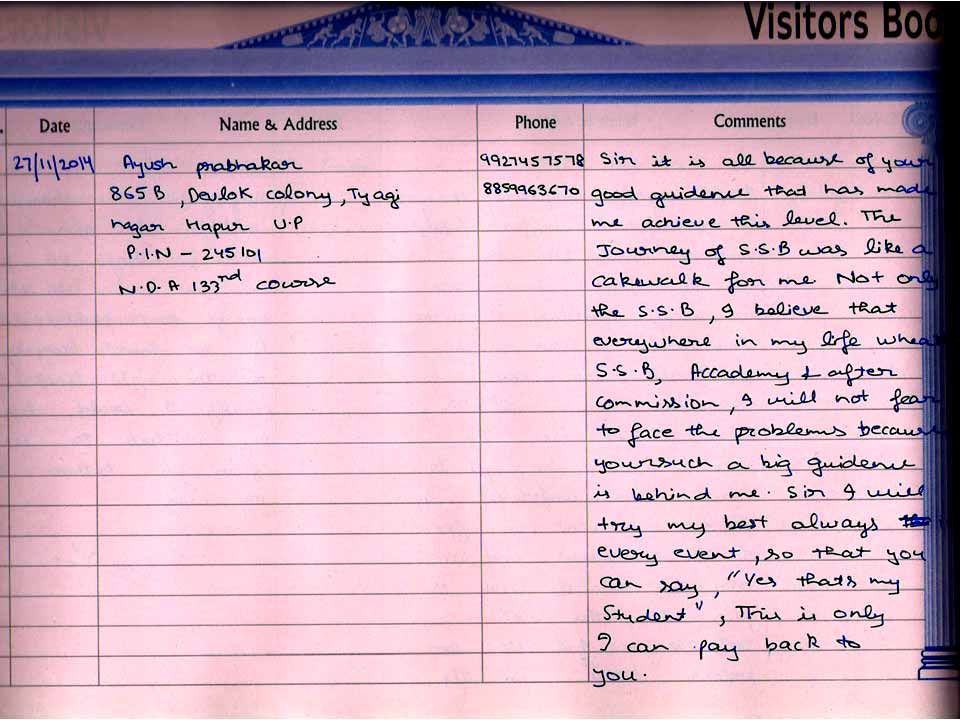 Visitors Boo
Date Name & Address Phone Comments
27/11/2014 Ayush prabhakar 9927457578 Sir it is all because of your
865 B, Devlok colony, Tyagi 8859963670 good guidence that has made
nagar Hapur U.P me achieve this level. The
P.I.N - 245101 Journey of S.S.B was like a
N.D.A 133rd course cakewalk for me Not only
the S.S.B, I believe that
everywhere in my life
S.S.B, Accademy & after
commission, I will not fear
to face the problems because
your such a big guidence
is behind me. Sir I will
try my best always
every event, so that you
can say, "Yes thats my
Student", This is only
I can pay back to
you.